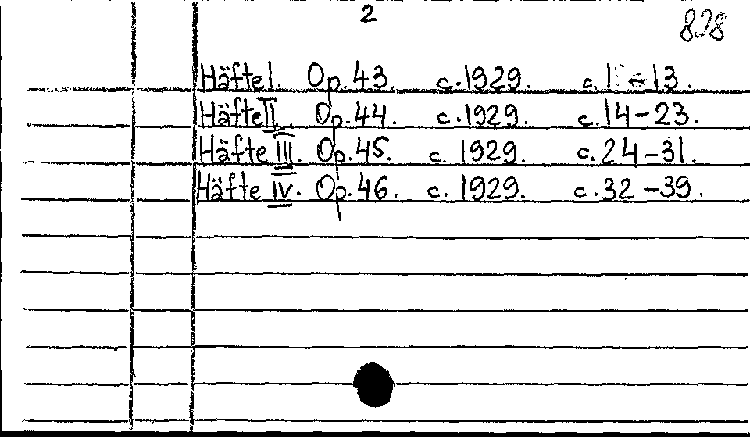 2
828
Häfte I. Op. 43. c. 1929. c. 1-13.
Häfte II. Op. 44. c. 1929. c. 14-23.
Häfte III. Op. 45. c. 1929. c. 24-31.
Häfte IV. Op. 46. c. 1929. c. 32-39.